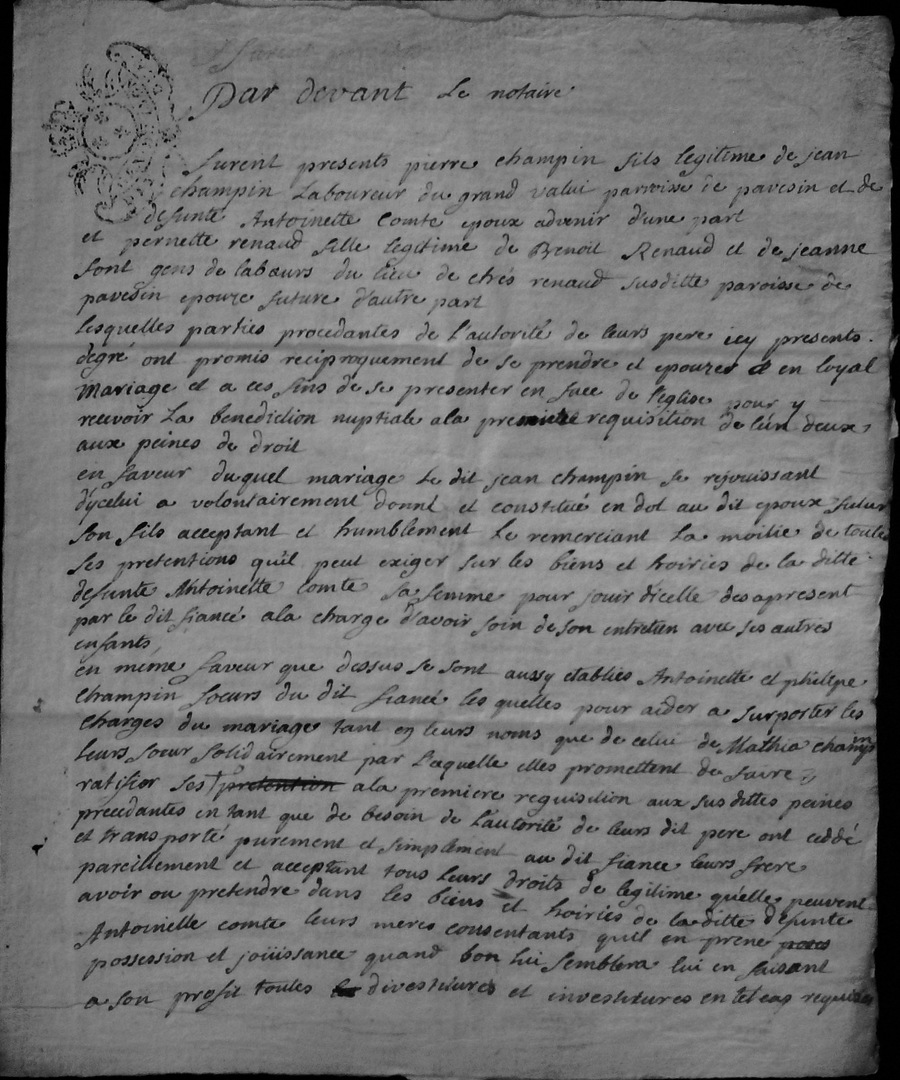 Par devant Le notaire
furent presents pierre champin fils legitime de jean
champin Laboureur du grand valui parroisse de pavesin et de
defunte Antoinette Comte epoux advenir d'une part
et pernette renaud fille legitime de Benoit Renaud et de jeanne
font gens de labœurs du lieu de chés renaud susditte paroisse de
pavesin epouze future d'autre part
lesquelles parties procedantes de l'autorité de leurs pere icy presents
degré ont promis reciproquement de se prendre et epouzer en loyal
Mariage et a ces fins de se presenter en face de l'eglise pour y
recevoir La benediction nuptiale ala premiere requisition de l'un deux
aux peines de droit
en faveur duquel mariage Le dit jean champin se rejouissant
d'ycelui a volontairement donné et constitué en dot au dit epoux futur
son fils acceptant et humblement Le remerciant La moitie de toute
ses pretentions qu'il peut exiger sur les biens et hoiries de la ditte
defunte Antoinette comte sa femme pour jouir d'icelle des apresent
par le dit fiancé ala charge d'avoir soin de son entretien avec ses autres
enfants
en même faveur que dessus se sont aussy etablies Antoinette et philepe
champin sœurs du dit fiancé les quelles pour aider a surporter les
charges du mariage tant en leurs noms que de celui de Mathia champin
leurs sœur solidairement par Laquelle elles promettent de faire
ratifier ses pretention ala premiere requisition aux sus dittes peines
precedantes en tant que de besoin de l'autorité de leurs dit pere ont ceddé
et transporté purement et simplement au dit fiance leurs frere
pareillement et acceptant tous leurs droits de legitime qu'elle peuvent
avoir ou pretendre dans les biens et hoiries de la ditte defunte
Antoinette comte leurs meres consentants qu'il en prene
possession et joüissance quand bon lui semblera lui en faisant
a son profit toutes divestitures et investitures en tel cas requises